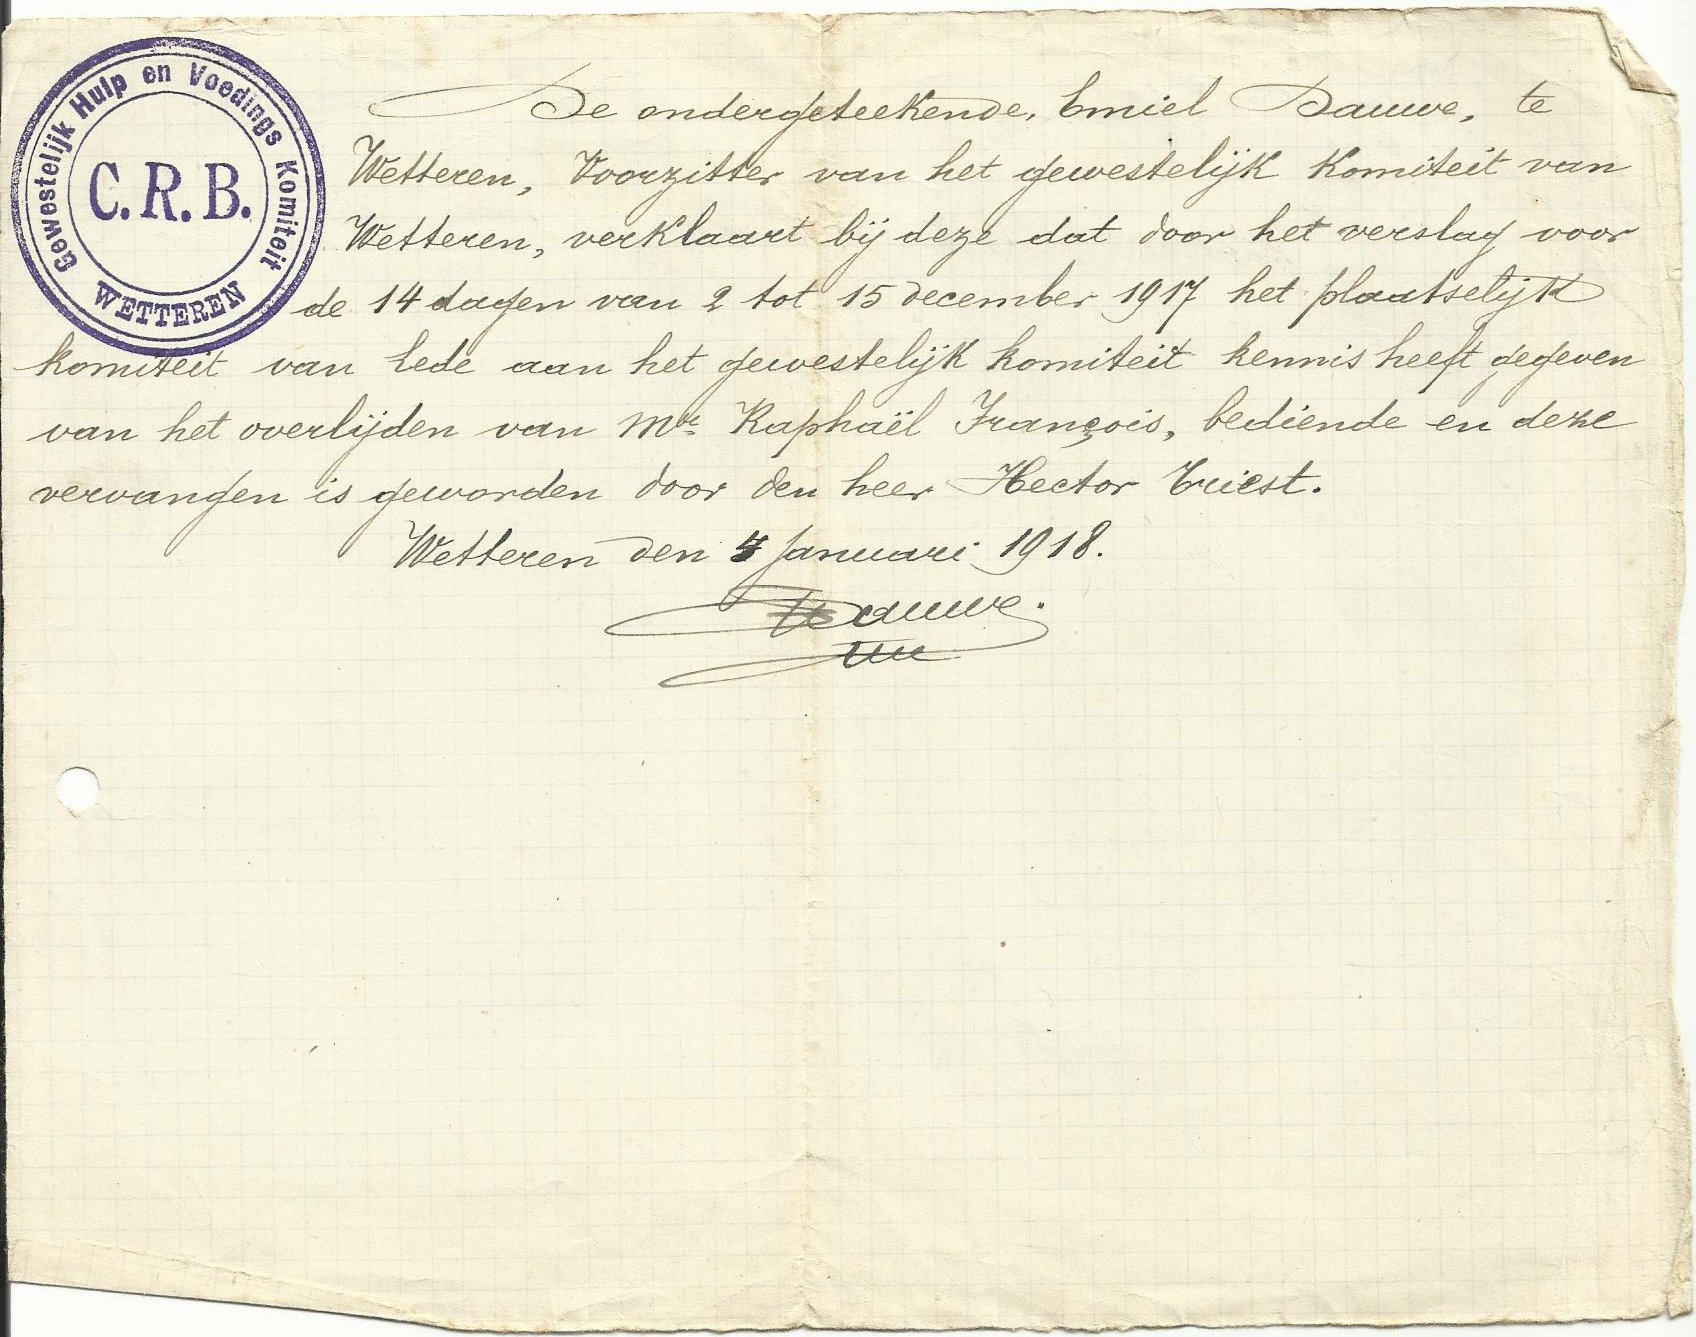 Gewestelijk Hulp en Voedings Komiteit
C.R.B.
WETTEREN
De ondergeteekende, Emiel Dauwe, te
Wetteren, Voorzitter van het gewestelijk Komiteit van
Wetteren, verklaart bij deze dat door het verslag voor
de 14 dagen van 2 tot 15 december 1917 het plaatselijk
komiteit van Lede aan het gewestelijk komiteit kennis heeft gegeven
van het overlijden van Mr. Raphaël François, bediende en deze
vervangen is geworden door den heer Hector Triest.
Wetteren den 4 Januari 1918.
Dauwe.